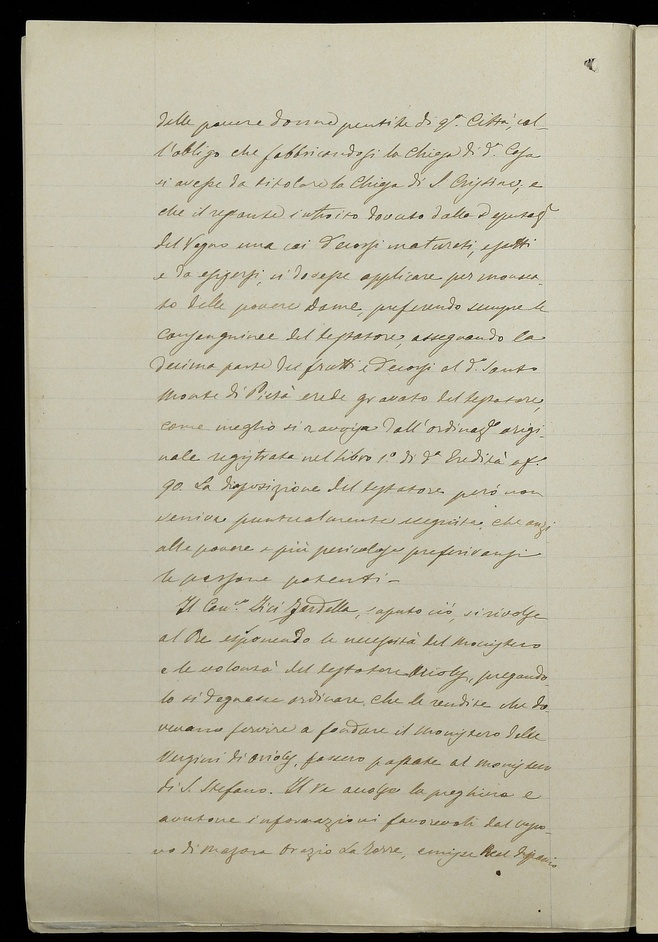 delle povere donne pentite di q.ª Città, col-
l'obligo che fabbricandosi la Chiesa di d.ª Casa
si avesse da titolare la Chiesa di S. Cristina, e
che il restante introito dovuto dalla Deputaz.e
del Regno una coi decorsi maturati, esatti
e da esiggersi, si dovesse applicare per monca-
to delle povere Dame, preferendo sempre le
consanguinee del testatore, assegnando la
decima parte dei frutti e decorsi al d.º Santo
Monte di Pietà erede gravato del testatore,
come meglio si ravvisa dall'ordinaz.e origi-
nale registrata nel libro 1.º di d.ª Eredità a f.º
90. La disposizione del testatore però non
veniva puntualmente eseguita, che anzi
alle povere e più pericolose preferivansi
le persone potenti –
Il Can.co Vici Jardella, saputo ciò, si rivolse
al Re esponendo le necessità del Monistero
e la volontà del testatore Arioly, pregando-
lo si degnasse ordinare, che le rendite che do-
veano servire a fondare il Monistero delle
Vergini di Arioly, fossero passate al monistero
di S. Stefano. Il Re accolse la preghiera e
avutone informazioni favorevoli dal vesco-
vo di Mazara Orazio La Torre, emise Real dispaccio